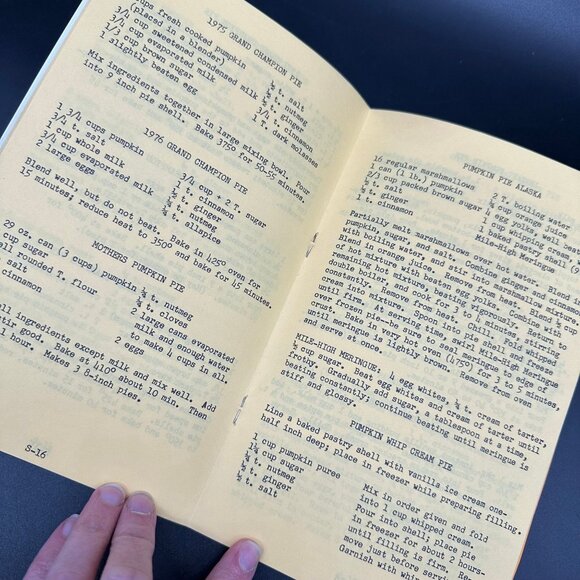 1975 GRAND CHAMPION PIE
cups fresh cooked pumpkin
(placed in a blender)
3/4 cup sweetened condensed milk
1/3 cup evaporated milk
1/4 cup brown sugar
1 slightly beaten egg
t. salt
t. nutmeg
t. ginger
3/4 t. cinnamon
1 T. dark molasses
Mix ingredients together in large mixing bowl. Pour
into 9 inch pie shell. Bake 375º for 50-55 minutes.
1976 GRAND CHAMPION PIE
1 3/4 cups pumpkin
3/4 t. salt
1 cup whole milk
3/4 cup evaporated milk
2 large eggs
3/4 cup + 2 T. sugar
t. cinnamon
t. ginger
t. nutmeg
t. allspice
Blend well, but do not beat. Bake in 425º oven for
15 minutes; reduce heat to 350º and bake for 45 minutes.
MOTHERS PUMPKIN PIE
29 oz. can (3 cups) pumpkin
cup sugar
rounded T. flour
salt
cinnamon
t. nutmeg
t. cloves
2 large cans evaporated
milk and enough water
to make 4 cups in all.
2 eggs
all ingredients except milk and mix well. Add
stir good. Bake at 410º about 10 min. Then
hour. Makes 3 8-inch pies.
S-16
PUMPKIN PIE ALASKA
16 regular marshmallows
1 can (1 lb.) pumpkin
2/3 cup packed brown sugar
t. salt
t. ginger
1 t. cinnamon
2 T. boiling water
cup orange juice
4 egg yolks, well beat
1 cup whipping cream,
1 baked pastry shell
Mile-High Meringue
Partially melt marshmallows over hot water. Blend
with boiling water, and stir into marshmallows
pumpkin, sugar, and salt. Combine ginger and cinnam
Blend in orange juice. Remove from heat. Blend
of hot mixture, beating vigorously. Combine with
remaining hot mixture, beating vigorously. Return to
double boiler, and cook for 3 to 5 minutes, stirring
constantly. Remove from heat. Chill. Fold whipped
cream into mixture. Spoon into pie shell and freeze
until firm. At serving time, swirl Mile-High Meringue
over frozen pie--be sure to seal meringue to edge of
crust. Bake in very hot oven (475º) for 3 to 5 minutes,
until meringue is lightly brown. Remove from oven
and serve at once.
MILE-HIGH MERINGUE: 4 egg whites, ¼ t. cream of tartar,
½ cup sugar. Beat egg whites and cream of tartar until
frothy. Gradually add sugar, a tablespoon at a time,
beating constantly; continue beating until meringue is
stiff and glossy.
PUMPKIN WHIP CREAM PIE
Line a baked pastry shell with vanilla ice cream one-
half inch deep; place in freezer while preparing filling.
1 cup pumpkin puree
cup sugar
t. nutmeg
t. ginger
t. salt
Mix in order given and fold
into 1 cup whipped cream.
Pour into shell; place pie
in freezer for about 2 hours-
until filling is firm. Re-
move just before servi
Garnish with whi